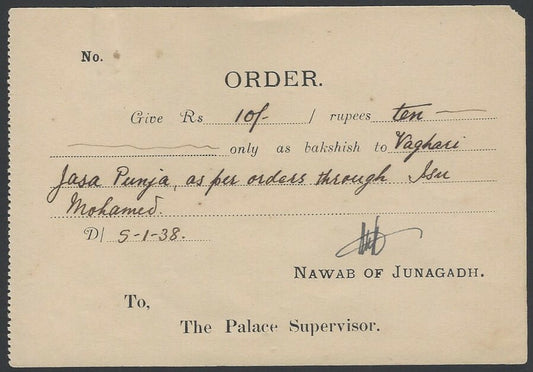 No.
ORDER.
Give Rs 10/- / rupees ten
only as bakshish to Vaghari
Jasa Punja, as per orders through Isu
Mohamed.
D/ 5-1-38.
NAWAB OF JUNAGADH.
To,
The Palace Supervisor.